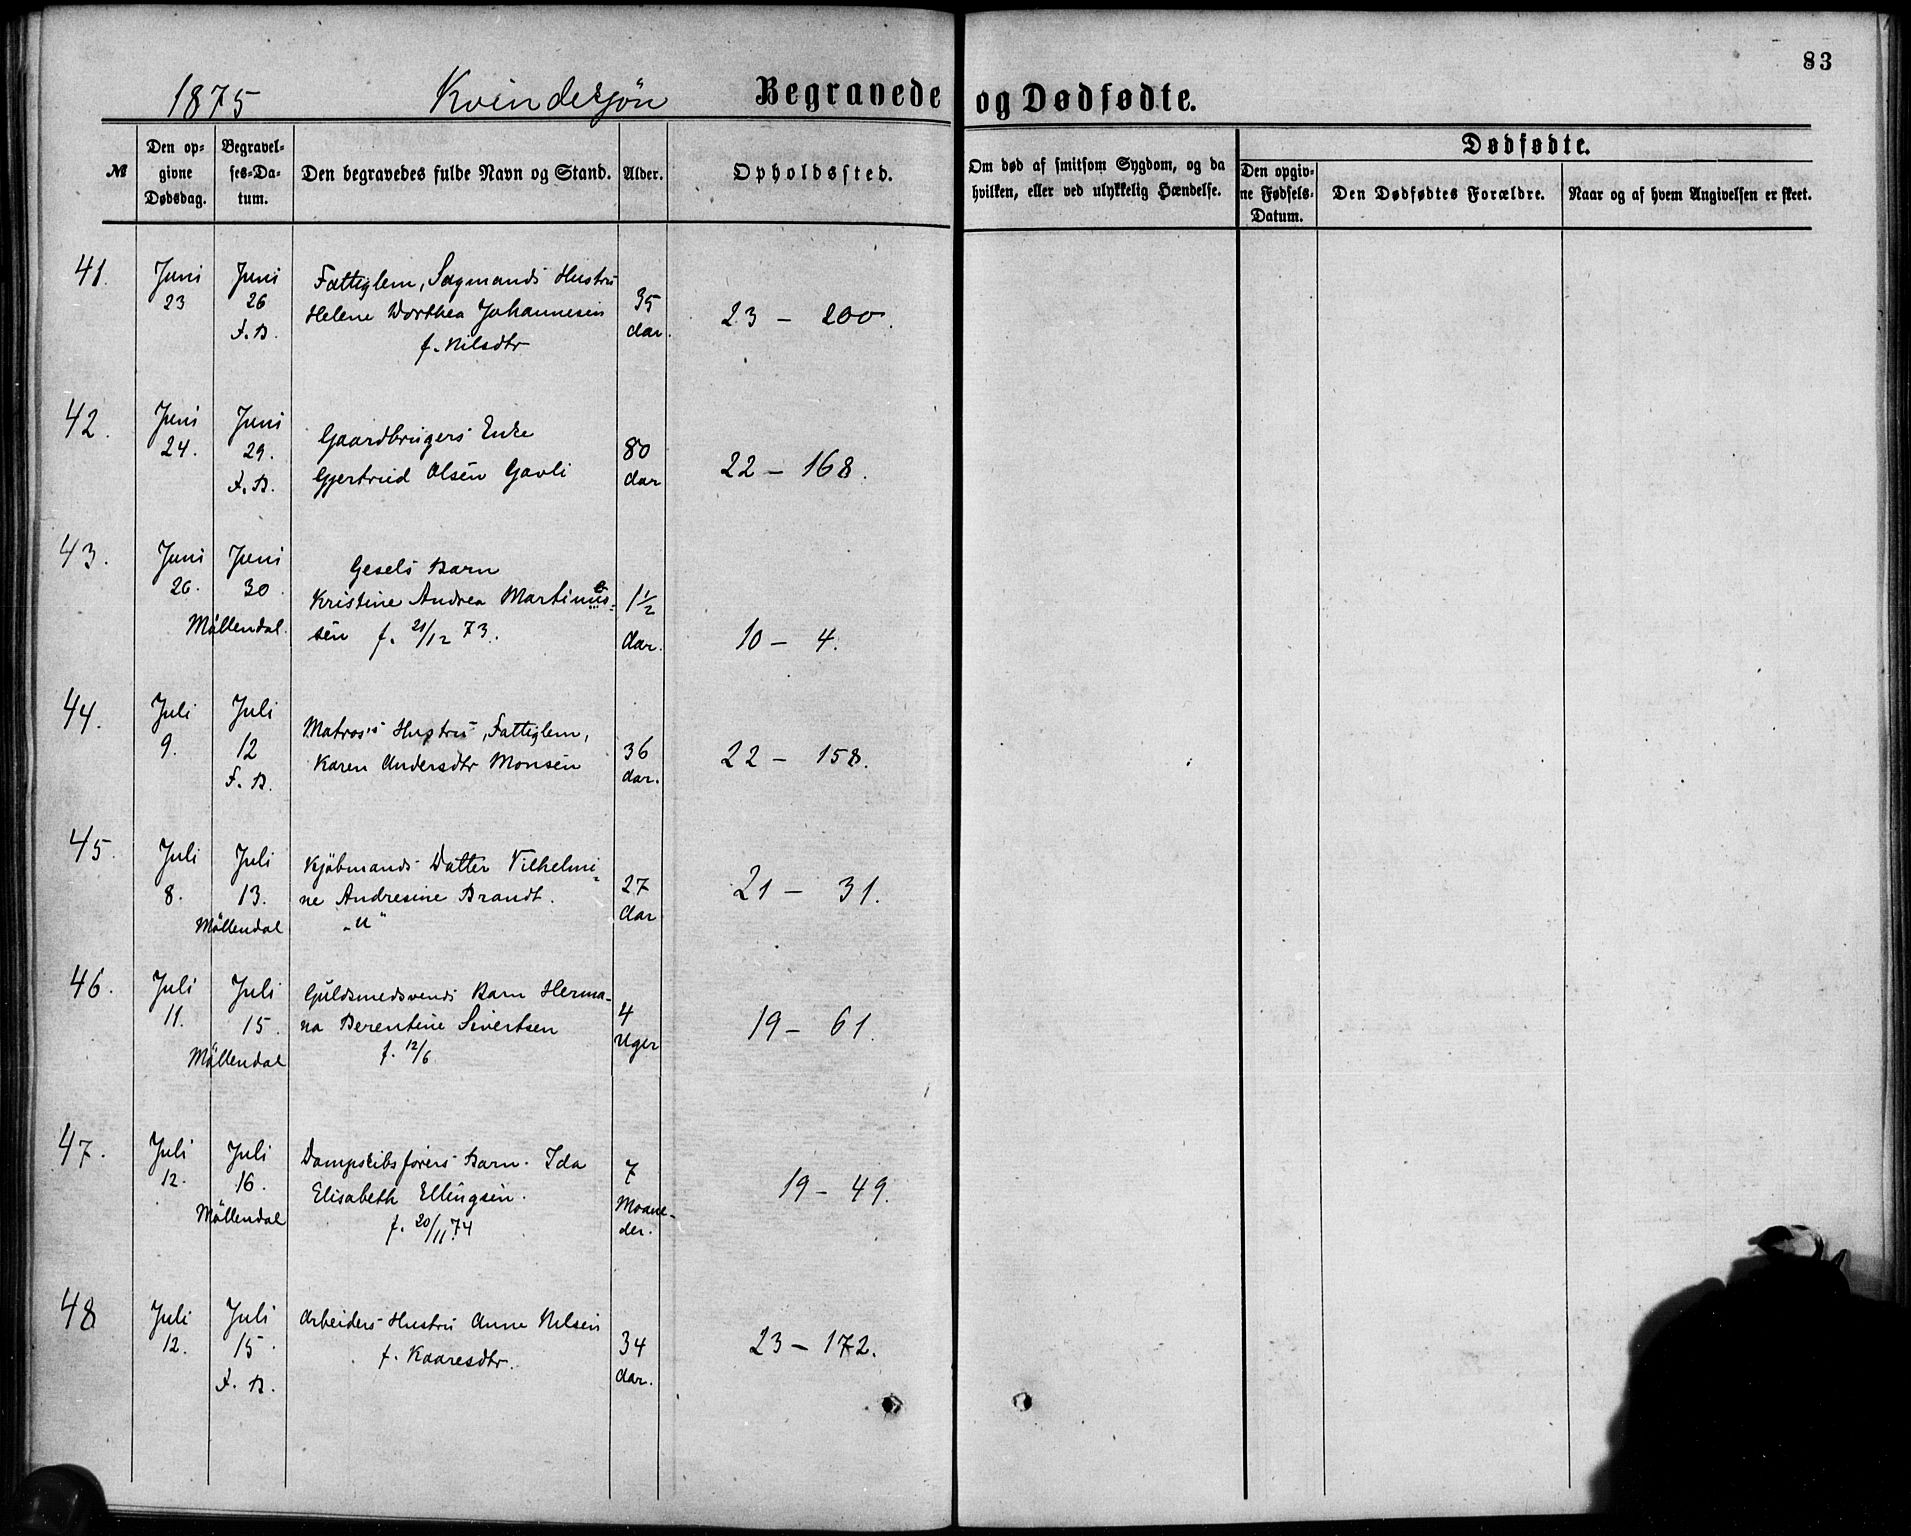 83
1875 Kvindesjøn Begravede og Dødfødte.
№
Den opgivne Dødsdag.
Begravelses-Datum.
Den begravedes fulde Navn og Stand.
Alder.
Opholdssted.
Om død af smitsom Sygdom, og da hvilken, eller ved ulykkelig Hændelse.
Dødfødte.
Den opgivne Fødsels-Datum.
Den Dødfødtes Forældre.
Naar og af hvem Angivelsen er skeet.
41. Juni 23 Juni 26 F.B.
Fattiglem, Sagmands Hustru
Helene Dorthea Johannesen
f. Nilsdtr
35 Aar. 23 - 200.
42. Juni 24. Juni 29. F.B.
Gaardbrugers Enke
Gjertrud Olsen Gavli
80 Aar 22 - 168.
43. Juni 26. Juni 30. Möllendal.
Gesels Barn
Kristine Andrea Martinus-
sen f. 21/12 73.
1 1/2 Aar. 10 - 4.
44. Juli 9. Juli 12 F.B.
Matros's Hustru, Fattiglem,
Karen Andersdtr Monsen
36 Aar. 22 - 158.
45. Juli 8. Juli 13. Möllendal
Kjöbmands Datter Vilhelmi-
ne Andresine Brandt.
"u"
27 Aar 21 - 31.
46. Juli 11. Juli 15. Möllendal
Guldsmedsvends Barn Herma-
na Berentine Sivertsen
f. 12/6
4 Uger 19 - 61.
47. Juli 12. Juli 16. Möllendal
Dampskibsförers Barn. Ida
Elisabeth Ellingsen.
f. 20/11.74
7 Maane-
der. 19 - 49.
48 Juli 12. Juli 15. F.B.
Arbeiders Hustru Anne Nilsen
f. Kaaresdtr.
34 Aar. 23 - 172.